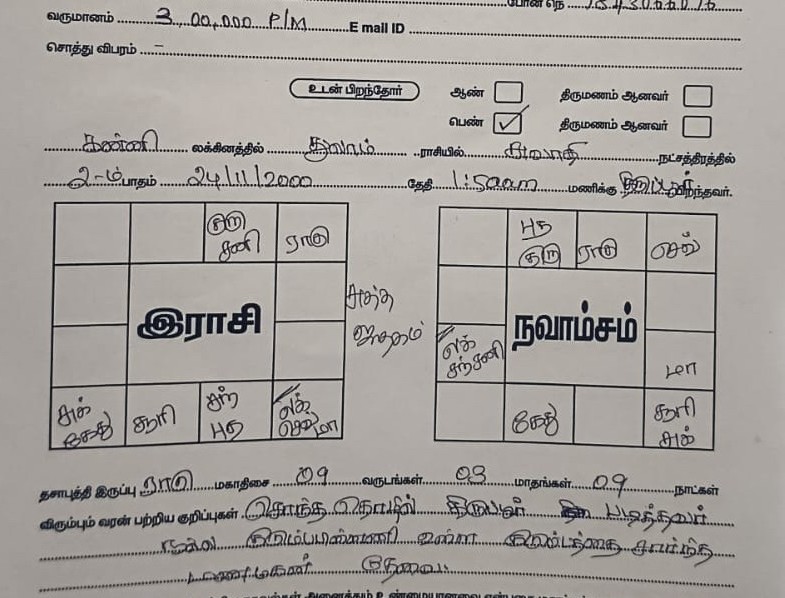 போன் நெ
வருமானம் 3,00,000 P/M E mail ID
சொத்து விபரம் –
உடன் பிறந்தோர் ஆண் திருமணம் ஆனவர்
பெண் ✓ திருமணம் ஆனவர்
கன்னி லக்கினத்தில் துலாம் ராசியில் சுவாதி நட்சத்திரத்தில்
2-ம் பாதம் 24/11/2000 தேதி 1:50am மணிக்கு திருப்பூர் பிறந்தவர்.
குரு
சனி
ராகு
இராசி
சுக்
கேது
சூரி
சந்
புத
லக்
செவ்
மா
சுத்த
ஜாதகம்
புத
குரு
ராகு
செவ்
நவாம்சம்
லக்
சந் சனி
மா
கேது
சூரி
சுக்
தசாபுத்தி இருப்பு ராகு மகாதிசை 09 வருடங்கள் 03 மாதங்கள் 09 நாட்கள்
விரும்பும் வரன் பற்றிய குறிப்புகள் சொந்த தொழில் திருப்பூர் படித்தவர்
நல்ல குடும்பபின்னணி உள்ள குடும்பத்தை சார்ந்த
மணமகன் தேவை.